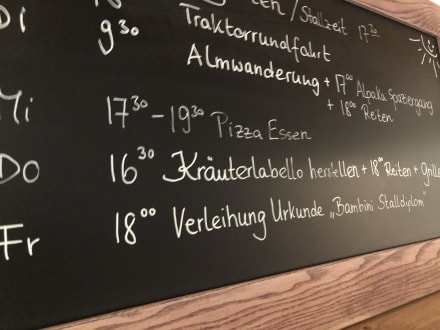 Di
/Stallzeit 17³⁰
9³⁰ Traktorrundfahrt
Almwanderung + 17⁰⁰ Alpaka Spaziergang
+ 18⁰⁰ Reiten
Mi 17³⁰ - 19³⁰ Pizza Essen
Do 16³⁰ Kräuterlabello herstellen + 18⁰⁰ Reiten + Grille
Fr 18⁰⁰ Verleihung Urkunde „Bambini Stalldiplom"